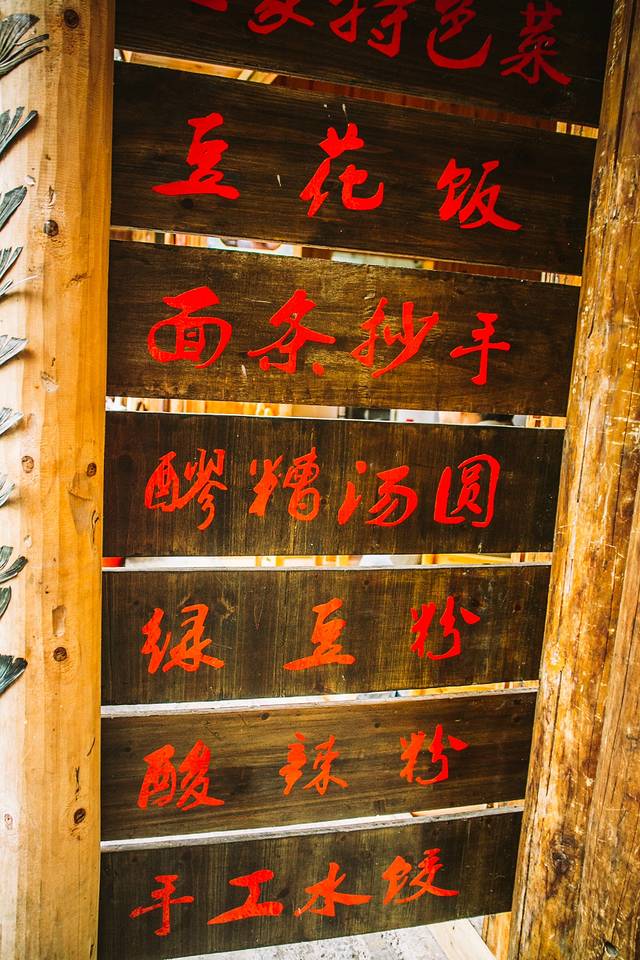 家特色菜
豆花饭
面条抄手
醪糟汤圆
绿豆粉
酸辣粉
手工水饺